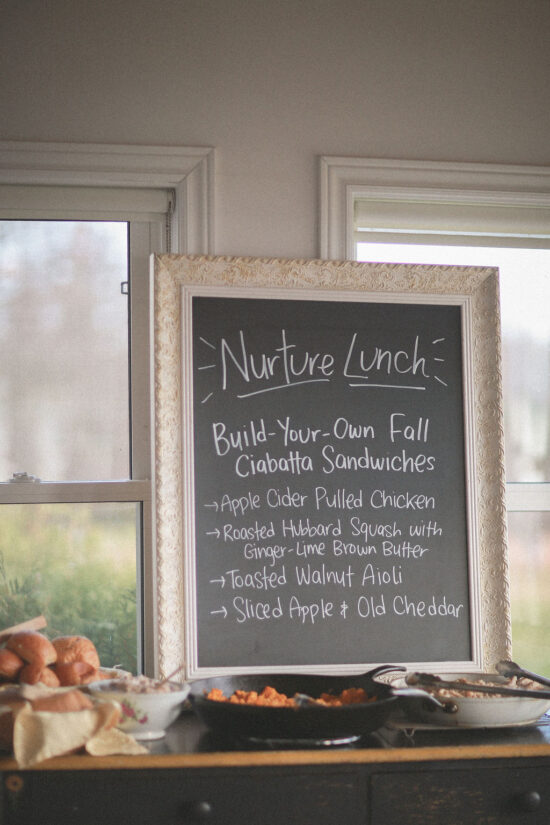 Nurture Lunch
Build-Your-Own Fall
Ciabatta Sandwiches
→Apple Cider Pulled Chicken
→Roasted Hubbard Squash with
Ginger-Lime Brown Butter
→Toasted Walnut Aioli
→Sliced Apple & Old Cheddar